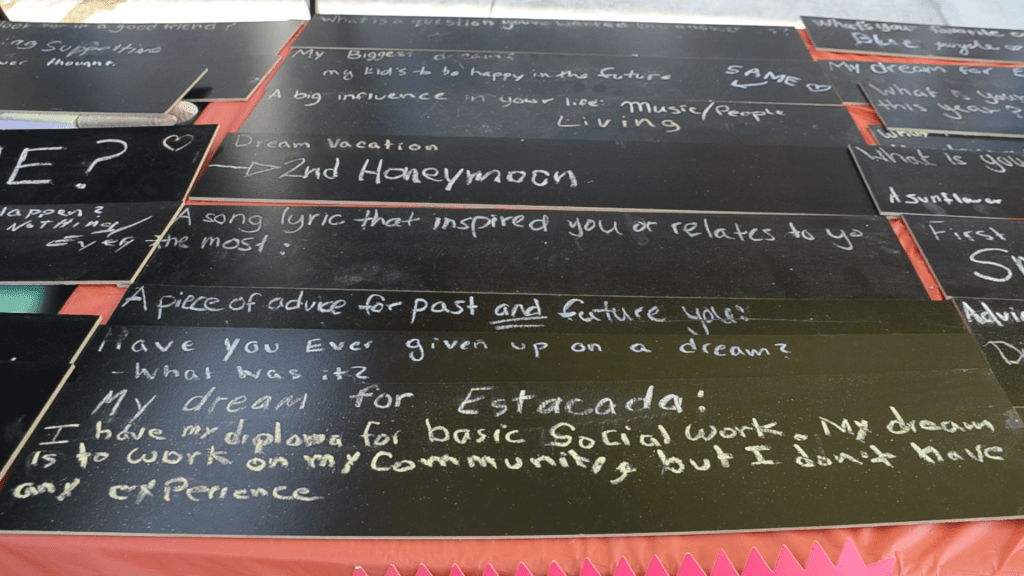 good friend?
ing Supportive
ver thought.
E?
Happen?
NOTHING/
EVER
What is a question you've wanted
My Biggest dream?
my kid's to be happy in the future
SAME
A big influence in your life: Music/People
Living
Dream Vacation
2nd Honeymoon
A song lyric that inspired you or relates to yo
the most:
A piece of advice for past and future you:
Have you Ever given up on a dream?
- What was it?
My dream for Estacada:
I have my diploma for basic Social Work. My dream
is to work on my Community, but I don't have
any experience
What's your favorite
Blue, purple
My dream for E
What is your
this year
What is you
A sunflower
First
Sn
Advic
D